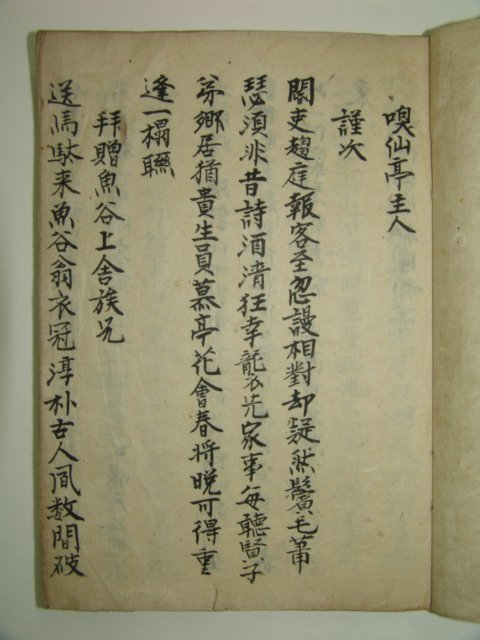 嗅仙亭主人
謹次
閽吏趨庭報客至忽謾相對却疑然鬢毛蕭
瑟須非昔詩酒清狂幸龍光家事每聽賢子
弟鄉居猶貴生員慕亭花會春將晚可得重
逢一榻聯
拜贈魚谷上舍族兄
送馬馱来魚谷翁衣冠淳朴古人風数間破